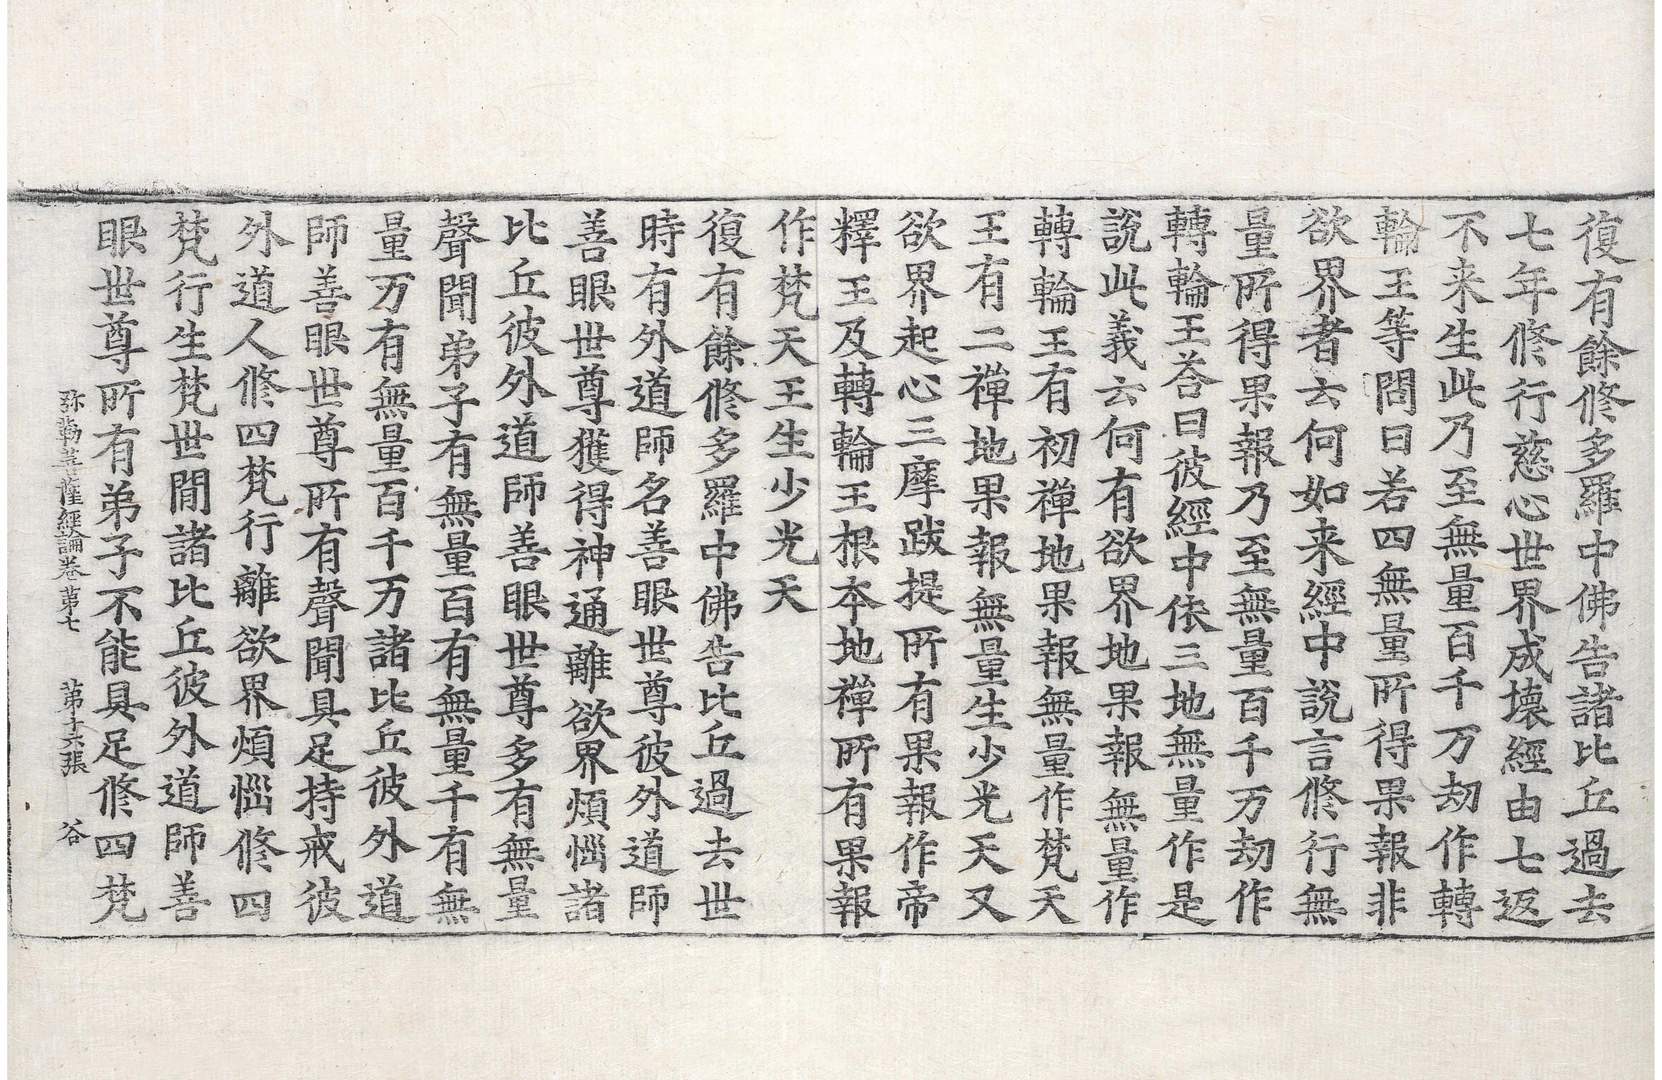 復有餘修多羅中佛告諸比丘過去
七年修行慈心世界成壞經由七返
不来生此乃至無量百千万劫作轉
輪王等問曰若四無量所得果報非
欲界者云何如来經中說言修行無
量所得果報乃至無量百千万劫作
轉輪王荅曰彼經中依三地無量作是
說此義云何有欲界地果報無量作
轉輪王有初禪地果報無量作梵天
王有二禪地果報無量生少光天又
欲界起心三摩跋提所有果報作帝
釋王及轉輪王根本地禪所有果報
作梵天王生少光天
復有餘修多羅中佛告比丘過去世
時有外道師名善眼世尊彼外道師
善眼世尊獲得神通離欲界煩惱諸
比丘彼外道師善眼世尊多有無量
聲聞弟子有無量百有無量千有無
量万有無量百千万諸比丘彼外道
師善眼世尊所有聲聞具足持戒彼
外道人修四梵行離欲界煩惱修四
梵行生梵世間諸比丘彼外道師善
眼世尊所有弟子不能具足修四梵
弥勒菩薩經論卷第七 第十六張 谷